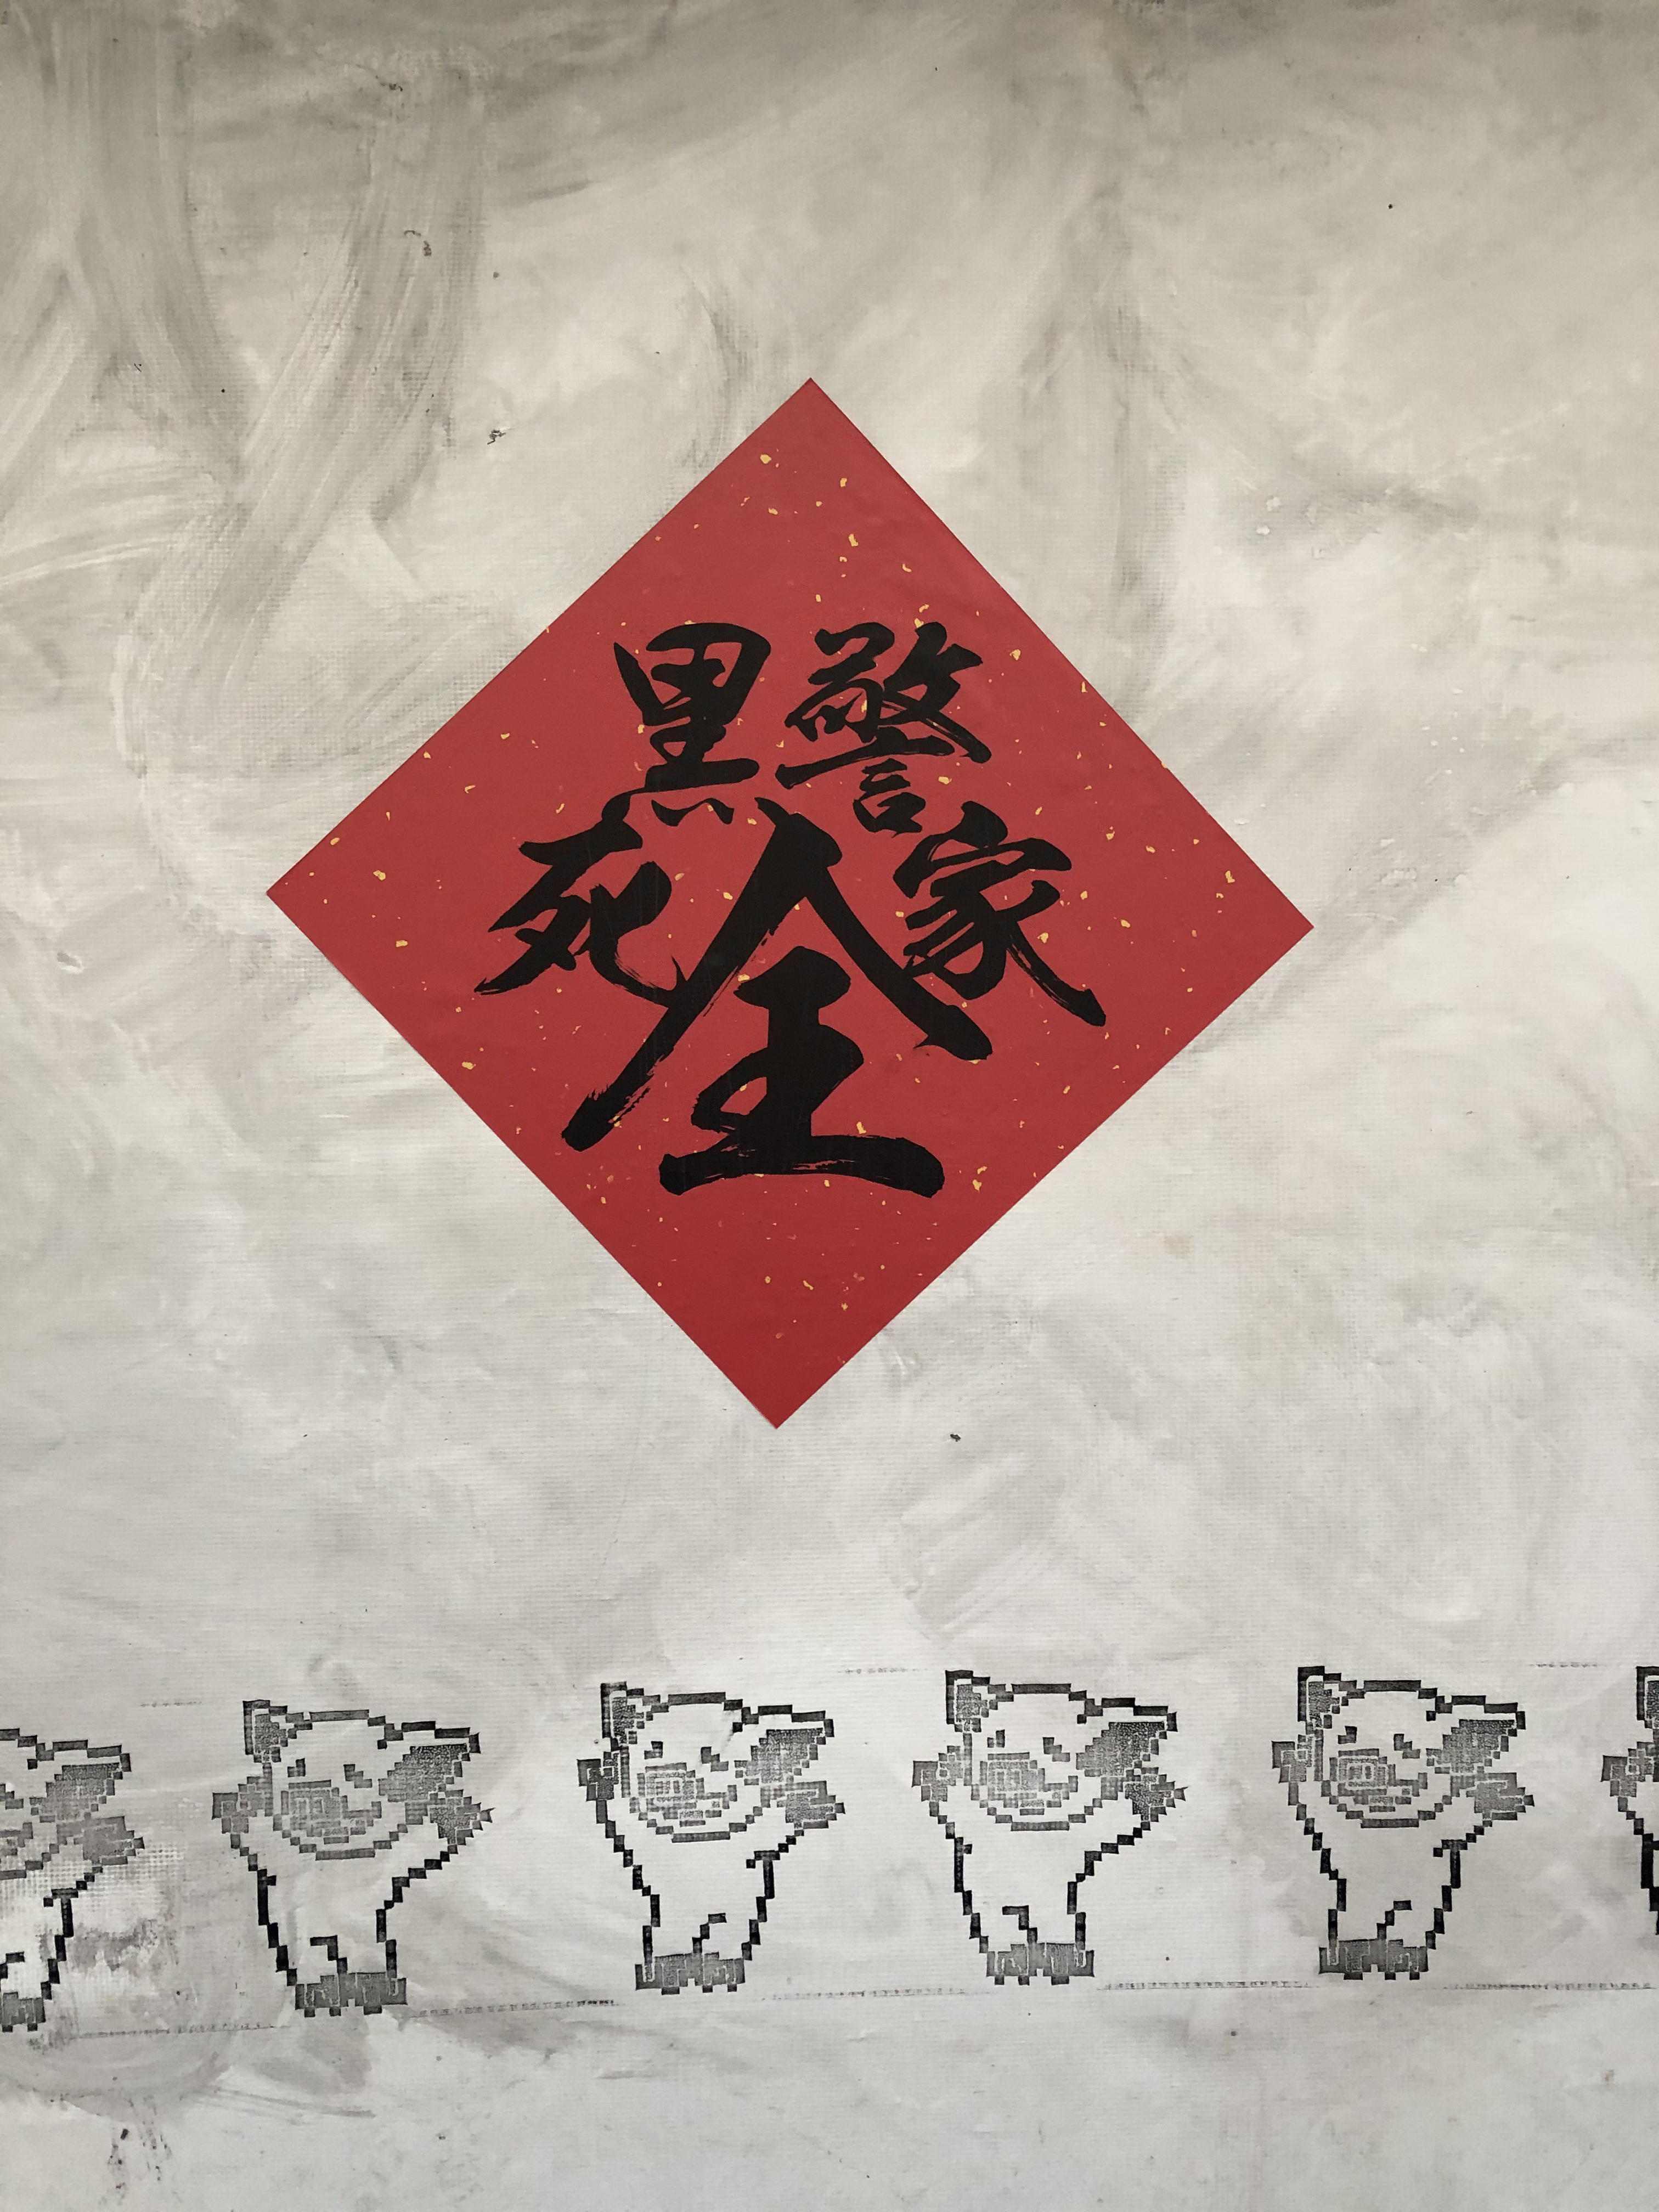 黑警
死全家